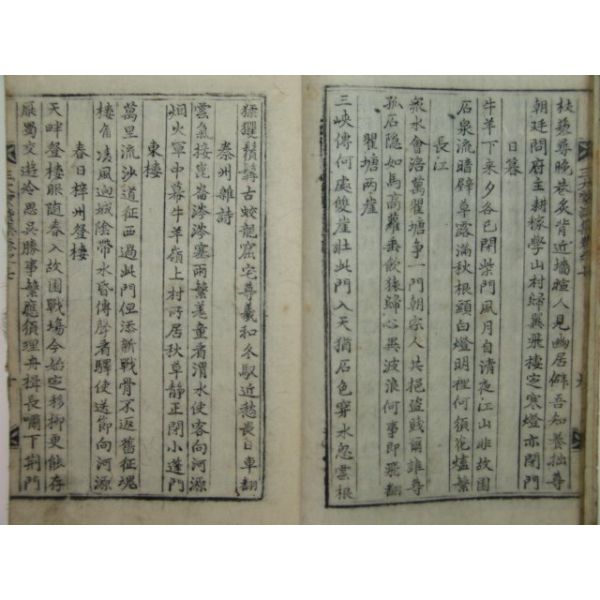 杖藜尋晚巷炙背近墻暄人見幽居僻吾知養拙尊
朝廷問府主耕稼學山村歸翼飛棲定寒燈亦閉門
日暮
牛羊下来夕各已閉柴門風月自清夜江山非故園
石泉流暗壁草露滿秋根頭白燈明裡何須花燼繁
長江
衆水會涪萬瞿塘爭一門朝宗人共挹盜賊爾誰尊
孤石隱如馬高蘿垂飲猿歸心異波浪何事即飛翻
瞿塘兩崖
三峽傳何處雙崖壯此門入天猶石色穿水忽雲根
猱玃鬚髥古蛟龍窟宅尊羲和冬馭近愁畏日車翻
秦州雜詩
雲氣接崑崙涔涔塞雨繁羌童看渭水使客向河源
烟火軍中幕牛羊嶺上村所居秋草靜正閉小蓬門
東樓
萬里流沙道征西過此門但添新戰骨不返舊征魂
樓角凌風迥城陰帶水昏傳聲看驛使送節向河源
春日梓州登樓
天畔登樓眼隨春入故園戰場今始定移柳更能存
厭蜀交遊冷思吳勝事繁應須理舟楫長嘯下荊門